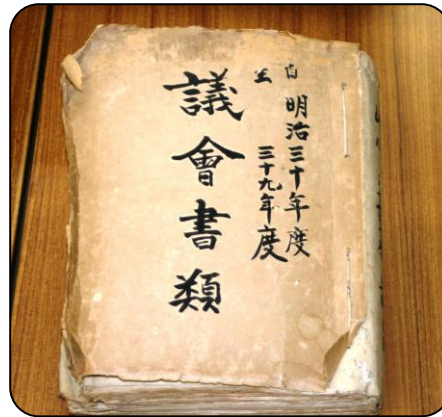 自明治三十年度
至三十九年度
議會書類